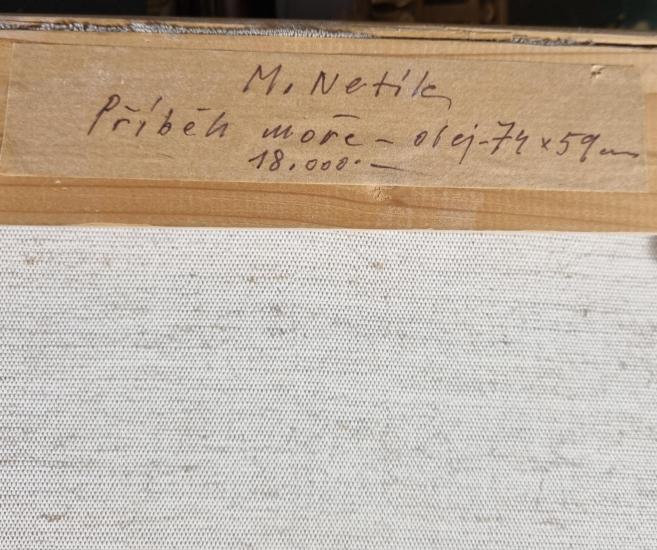 M. Netík
Příběh moře - olej-74 x 59 cm
18.000.-